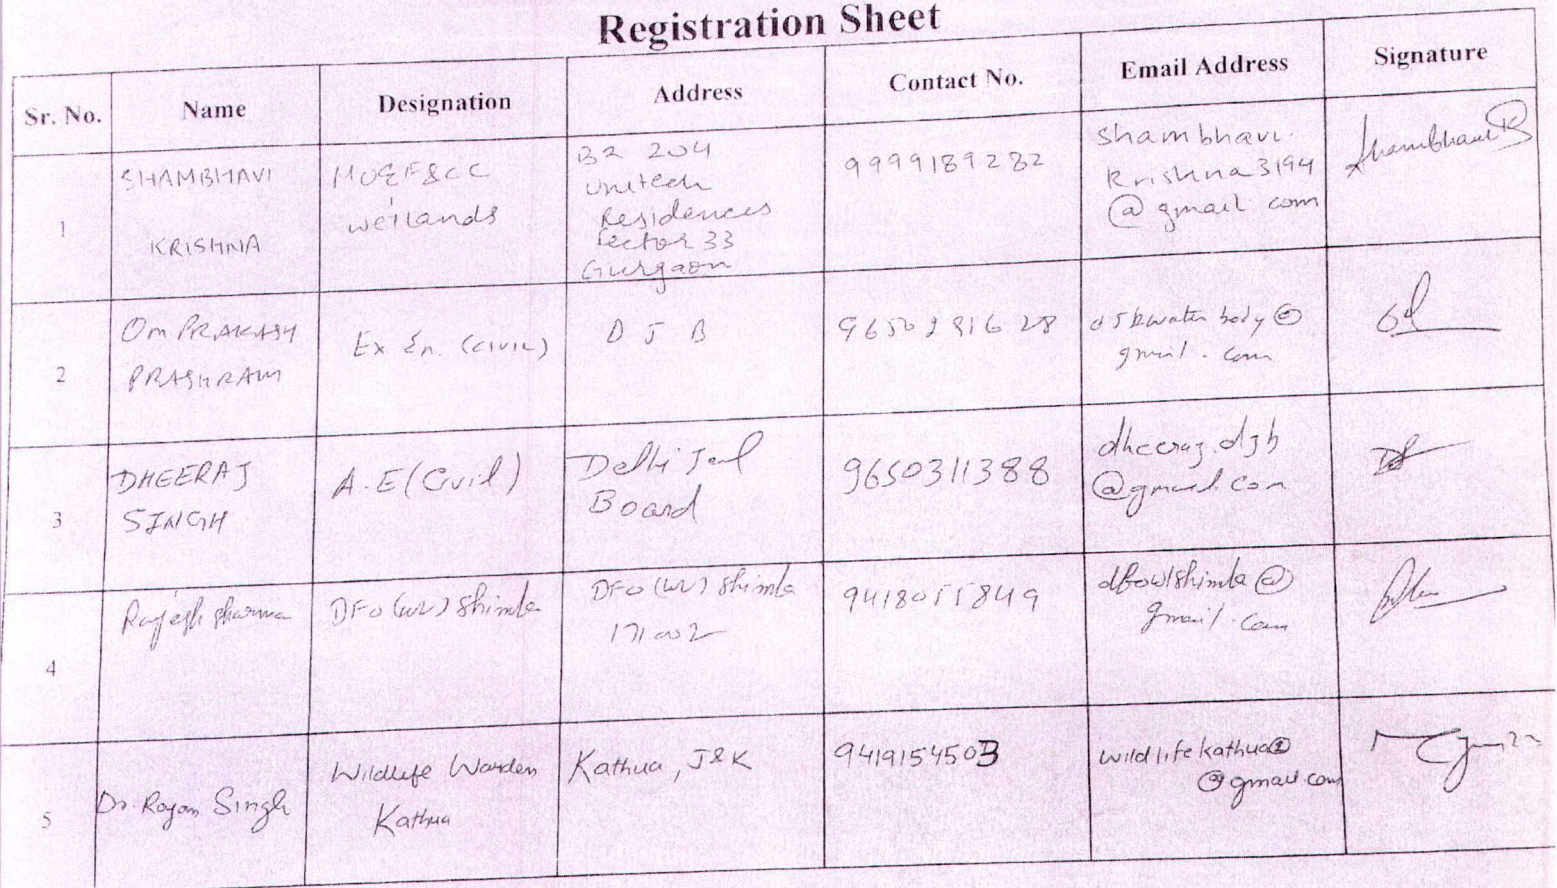 Registration Sheet
Sr. No. Name Designation Address Contact No. Email Address Signature
1
SHAMBHAVI
KRISHNA
MOEF&CC
wetlands
B2 204
Unitech
Residences
Sector 33
Gurgaon
9999189282
shambhavi.
krishna3194
@gmail com
2
OM PRAKASH
Ex En. (civil)
D J B
gmail.com
3
DHEERAJ
SINGH
A.E (Civil)
Delhi Jal
Board
9650311388
dheeraj.djb
@gmail.com
4
Rajesh Sharma
DFO (WL) Shimla
DFO (WL) Shimla
171002
9418055849
dfowlshimla@
gmail.com
5
Dr. Rayan Singh
Wildlife Warden
Kathua
Kathua, J&K
9419154503
wildlifekathua
@gmail com